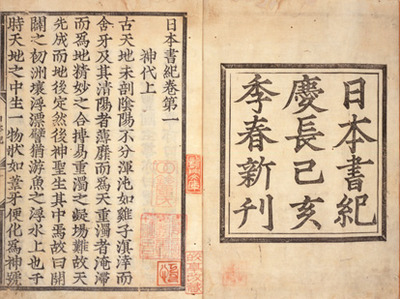 日本書紀
慶長己亥
季春新刊
日本書紀卷第一
神代上
古天地未剖陰陽不分渾沌如雞子溟涬而
含牙及其清陽者薄靡而爲天重濁者淹滯
而爲地精妙之合摶易重濁之凝塲難故天
先成而地後定然後神聖生其中焉故曰開
闢之初洲壤浮漂譬猶游魚之浮水上也于
時天地之中生一物狀如葦牙便化爲神號